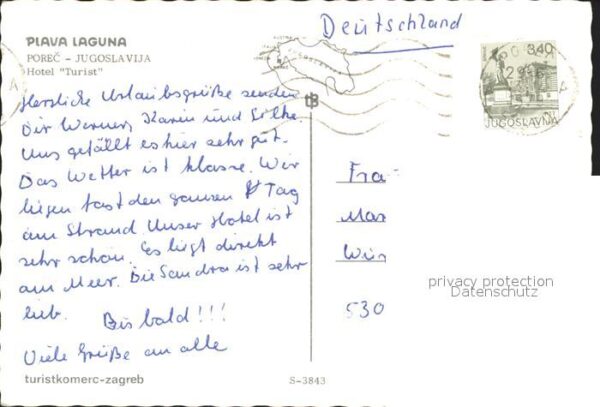 PLAVA LAGUNA
POREČ – JUGOSLAVIJA
Hotel "Turist"
Deutschland
3,40
JUGOSLAVIJA
Herzliche Urlaubsgrüße senden
Dir Werner, Karen und Silke.
Uns gefällt es hier sehr gut.
Das Wetter ist klasse. Wir
liegen fast den ganzen Tag
am Strand. Unser Hotel ist
sehr schön. Es liegt direkt
am Meer. Die Sandra ist sehr
lieb.
Bis bald!!!
Viele Grüße an alle
Fra
Mar
530
privacy protection
Datenschutz
turistkomerc-zagreb
S-3843